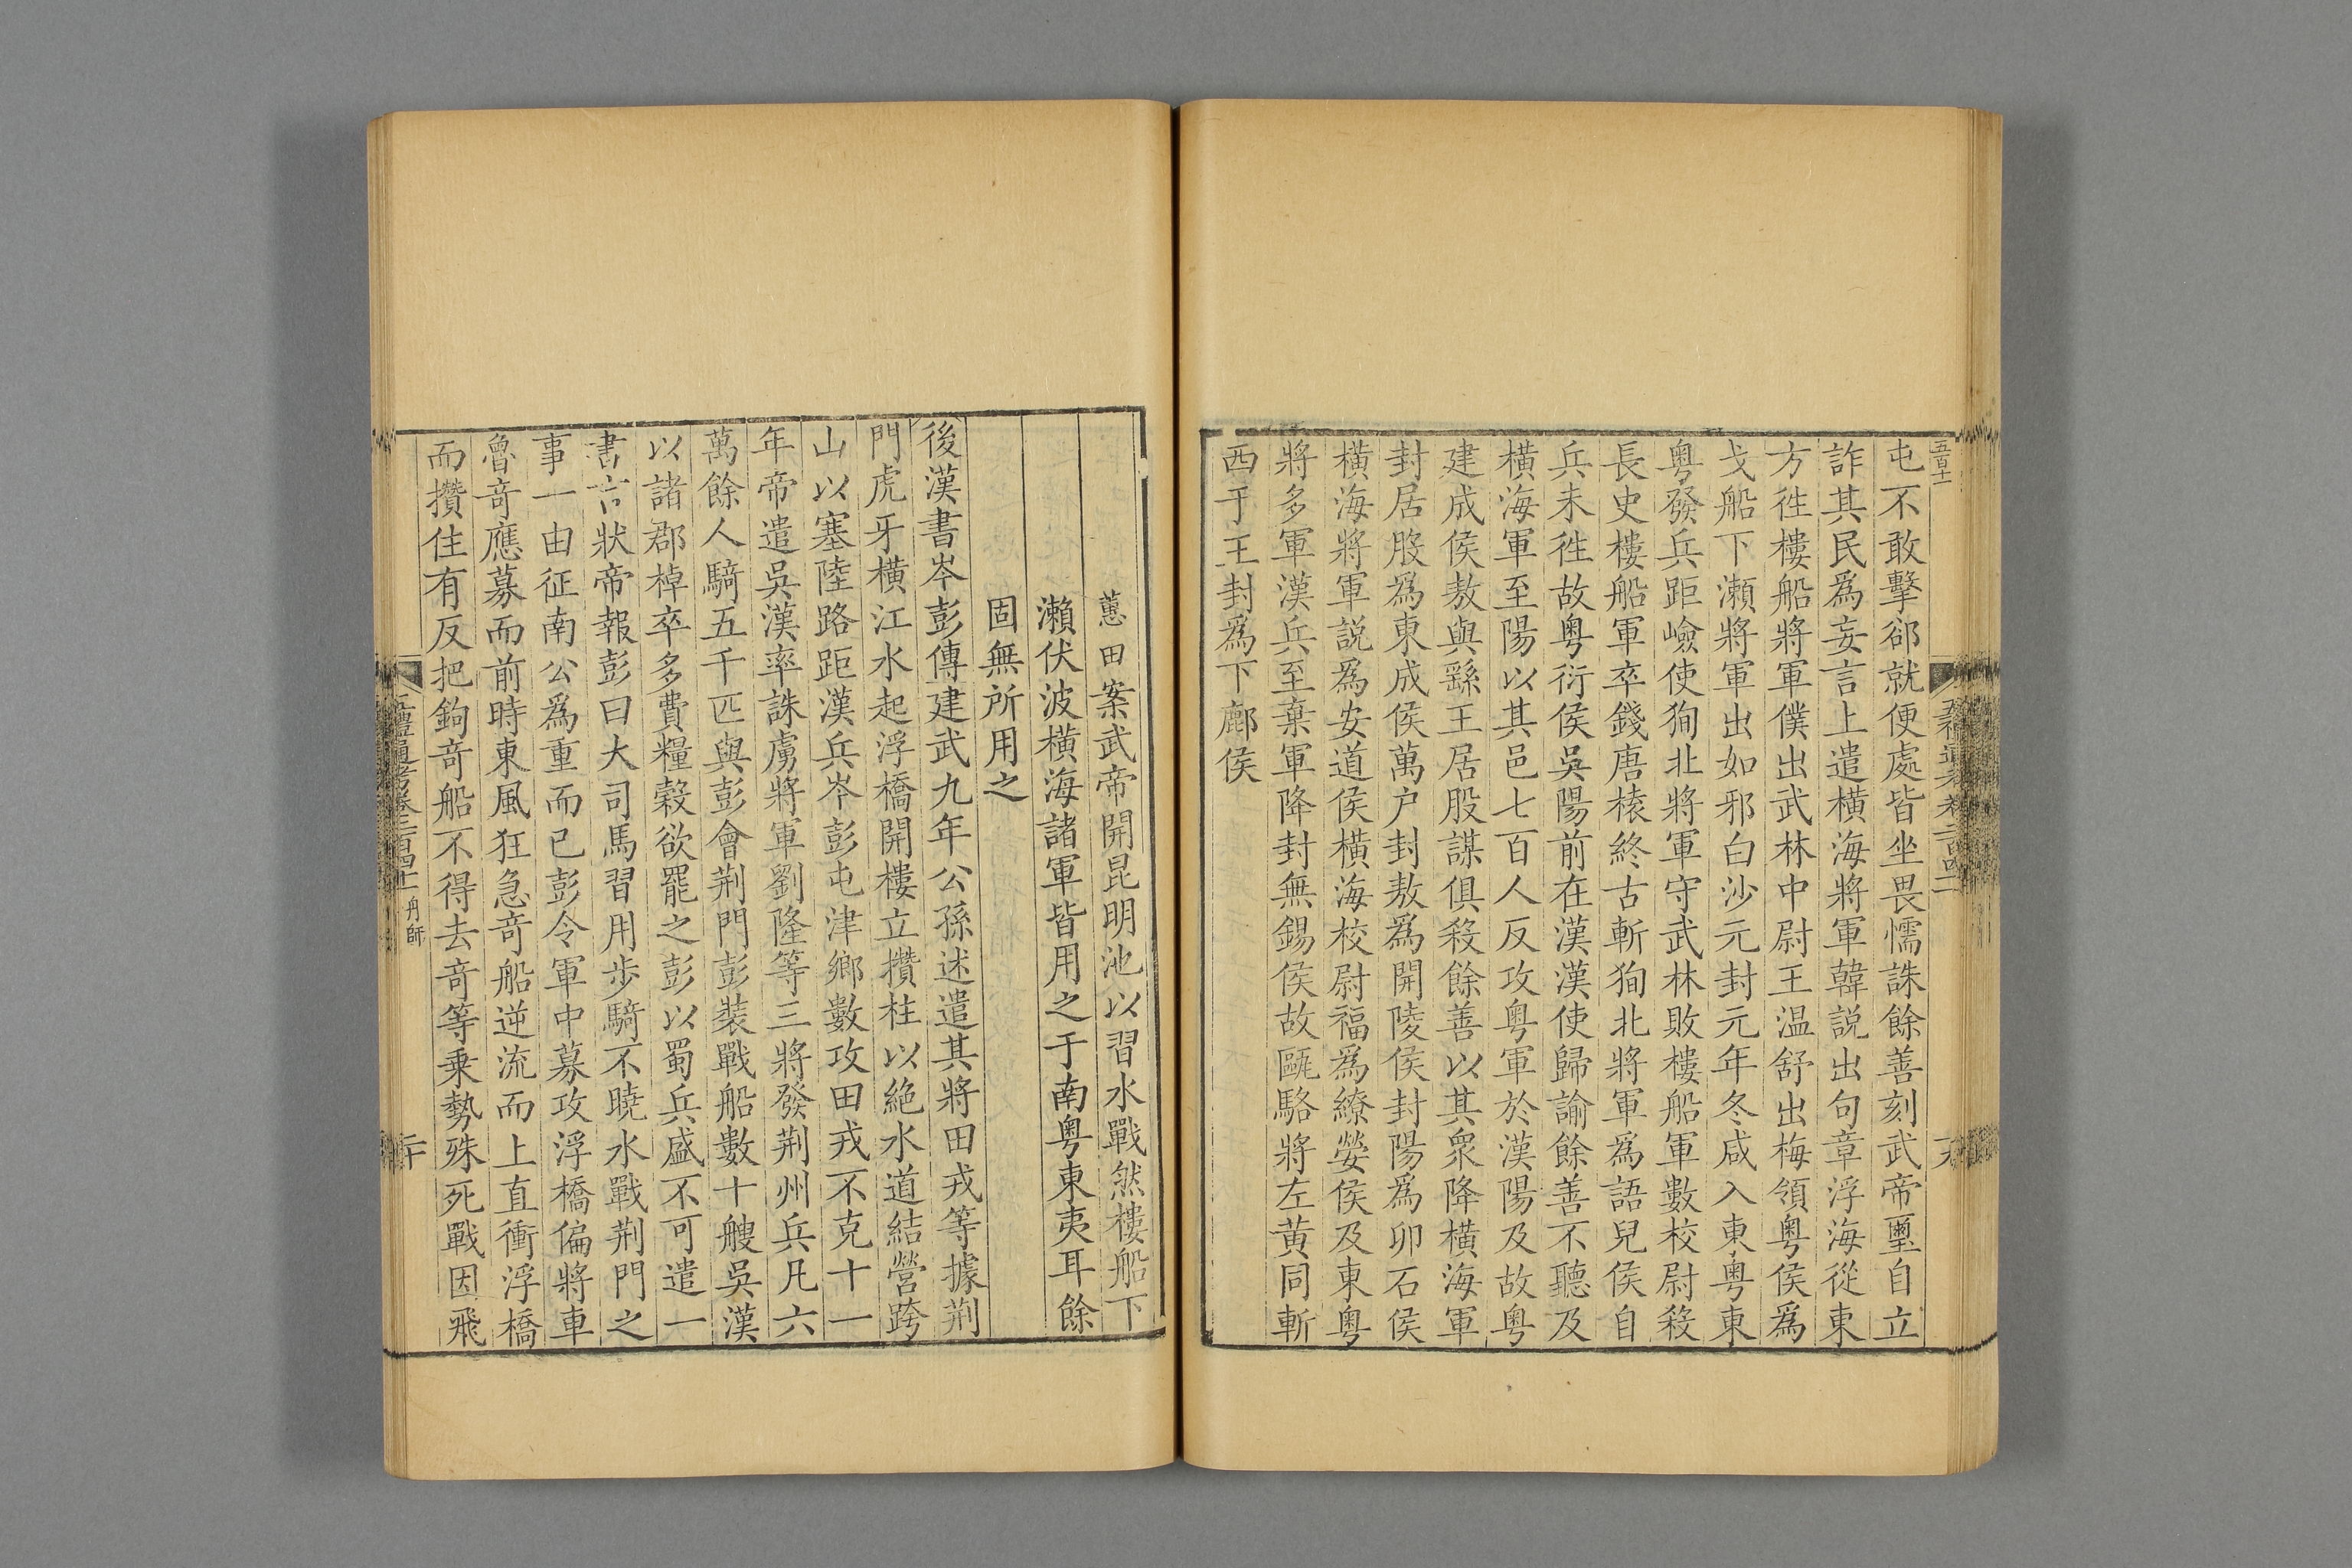 五百十一
屯不敢擊郤就便處皆坐畏懦誅餘善刻武帝璽自立
詐其民爲妄言上遣橫海將軍韓説出句章浮海從東
方徃樓船將軍僕出武林中尉王温舒出梅領粵侯爲
戈船下瀨將軍出如邪白沙元封元年冬咸入東粵東
粵發兵距嶮使狥北將軍守武林敗樓船軍數校尉殺
長史樓船軍卒錢唐榬終古斬狥北將軍爲語兒侯自
兵未徃故粵衍侯吳陽前在漢漢使歸諭餘善不聽及
橫海軍至陽以其邑七百人反攻粵軍於漢陽及故粵
建成侯敖與繇王居股謀俱殺餘善以其衆降橫海軍
封居股爲東成侯萬户封敖爲開陵侯封陽爲卯石侯
橫海將軍說爲安道侯橫海校尉福爲繚嫈侯及東粵
將多軍漢兵至棄軍降封無錫侯故甌駱將左黄同斬
西于王封爲下鄜侯
蕙田案武帝開昆明池以習水戰然樓船下
瀨伏波橫海諸軍皆用之于南粵東夷耳餘
固無所用之
後漢書岑彭傳建武九年公孫述遣其將田戎等據荆
門虎牙橫江水起浮橋開樓立攢柱以絶水道結營跨
山以塞陸路距漢兵岑彭屯津鄉數攻田戎不克十一
年帝遣吳漢率誅虜將軍劉隆等三將發荆州兵凡六
萬餘人騎五千匹與彭會荆門彭裝戰船數十艘吳漢
以諸郡棹卒多費糧穀欲罷之彭以蜀兵盛不可遣一
書言狀帝報彭曰大司馬習用步騎不曉水戰荆門之
事一由征南公爲重而已彭令軍中募攻浮橋偏將車
魯竒應募而前時東風狂急竒船逆流而上直衝浮橋
而攢住有反把鉤竒船不得去竒等乘勢殊死戰因飛
五禮通考卷二百四十二 舟師 二十